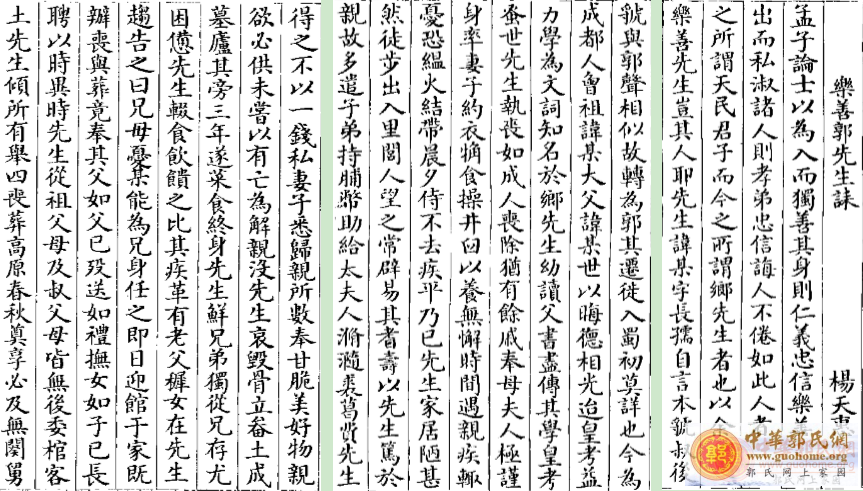 樂善郭先生誄 楊天
孟子論士以為入而獨善其身則仁義忠信樂
出而私淑諸人則孝弟忠信誨人不倦如此人者
之所謂天民君子而今之所謂鄉先生者也以
樂善先生豈其人耶先生諱某字長孺自言本虢叔後
虢與郭聲相似故轉為郭其遷徙入蜀初莫詳也今為
成都人曾祖諱某大父諱某世以晦德相光迨皇考益
力學為文詞知名於鄉先生幼讀父書盡傳其學皇考
蚤世先生執喪如成人喪除猶有餘戚奉母夫人極謹
身率妻子約衣觕食操井臼以養無懈時間遇親疾輒
憂恐縕火結帶晨夕侍不去疾平乃已先生家居陋甚
然徒步出入里閭人望之常辟易其耆壽以先生篤於
親故多遣子弟持脯幣助給太夫人滫瀡裘葛費先生
得之不以一錢私妻子悉歸親所數奉甘脆美好物親
欲必供未嘗以有亡為解親沒先生哀毀骨立畚土成
墓廬其旁三年遂菜食終身先生鮮兄弟獨從兄存尤
困憊先生輟食飲饋之比其疾革有老父穉女在先生
趨告之曰兄毋憂某能為兄身任之即日迎館于家既
辦喪與葬竟奉其父如父已歿送如禮撫女如子已長
聘以時異時先生從祖父母及叔父母皆無後委棺客
土先生傾所有舉四喪葬高原春秋奠享必及無闕舅
郭
中華郭氏網
www.guohome.org
郭氏網上家園